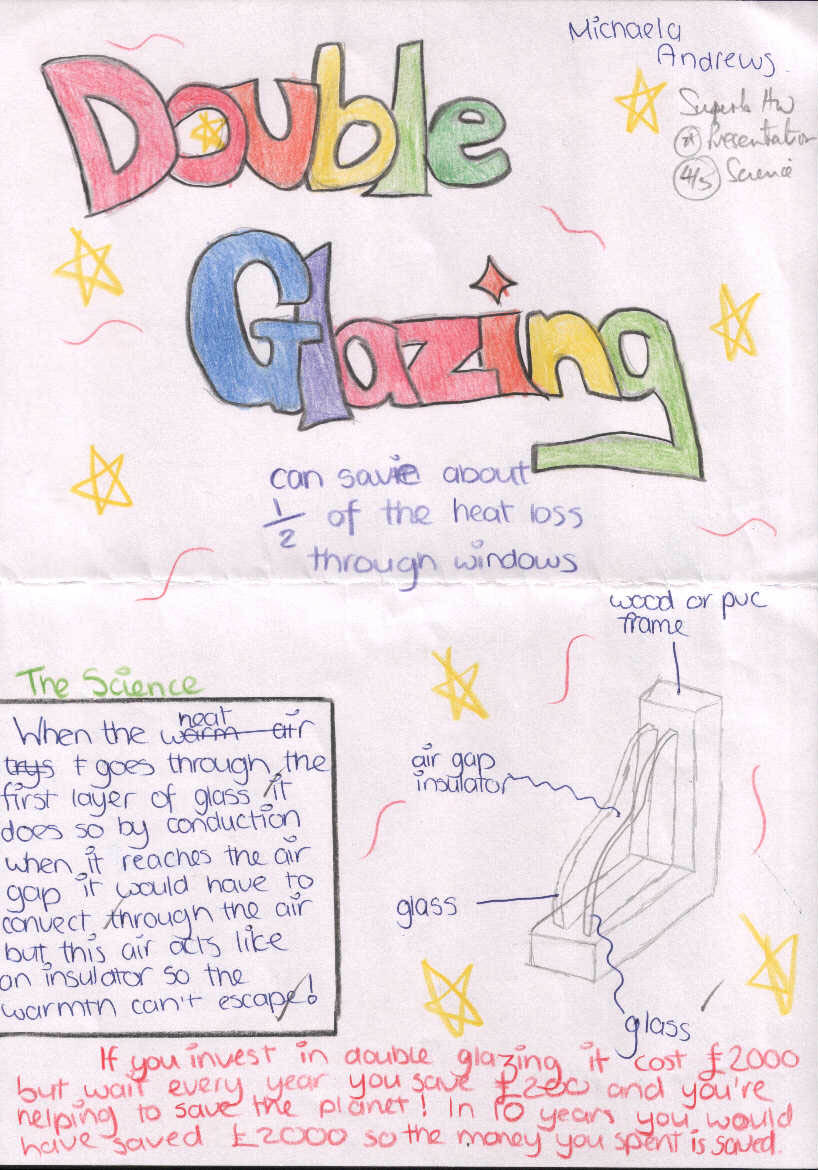 Michaela
Andrews.
Double
Superb HW
Presentation
4/5 Science
Glazing
can save about
1/2 of the heat loss
through windows
wood or pvc
frame
The Science
When the heat
warm air
trys t goes through, the
first layer of glass it
does so by conduction
when it reaches the air
gap it would have to
convect through the air
but this air acts like
an insulator so the
warmth can't escape!
air gap
insulator
glass
glass
If you invest in double glazing it cost £2000
but wait every year you save £200 and you're
helping to save the planet! In 10 years you would
have saved £2000 so the money you spent is saved.